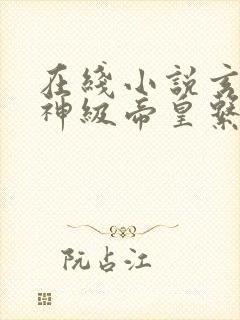 在綫小説玄
神級帝皇系
阮占江